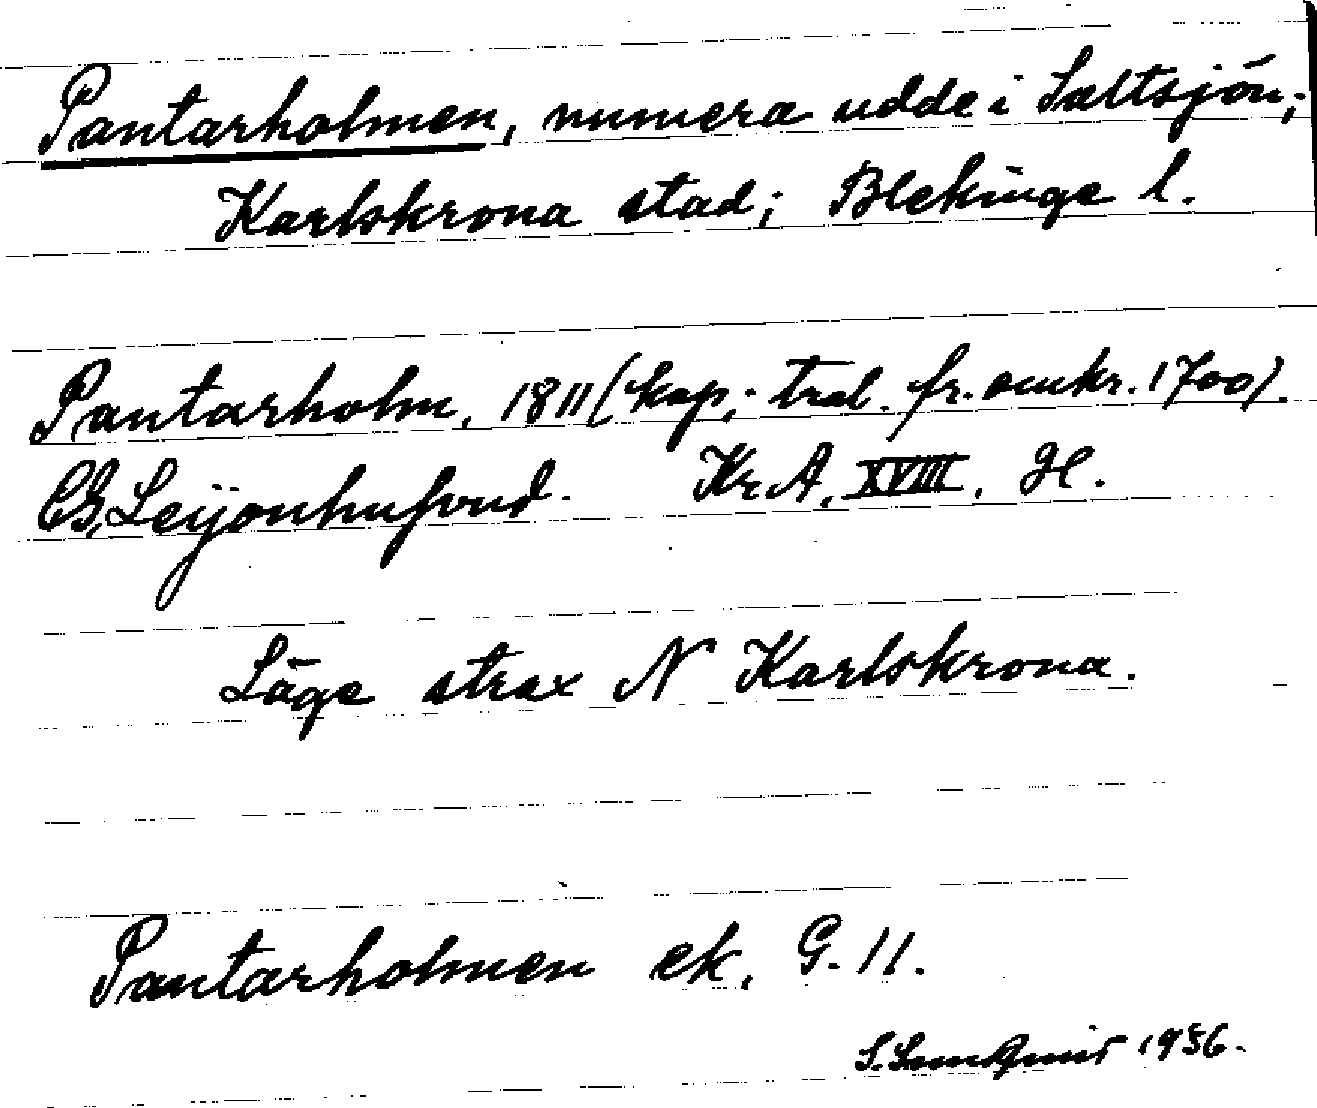 Pantarholmen, numera udde i Saltsjön;
Karlskrona stad; Blekinge l.
Pantarholm, 1811 (kop; trol. fr. omkr. 1700).
CG. Leijonhufvud. KrA, XVIII, H.
Läge strax N Karlskrona.
Pantarholmen ek. G. 11.
S. 1936.